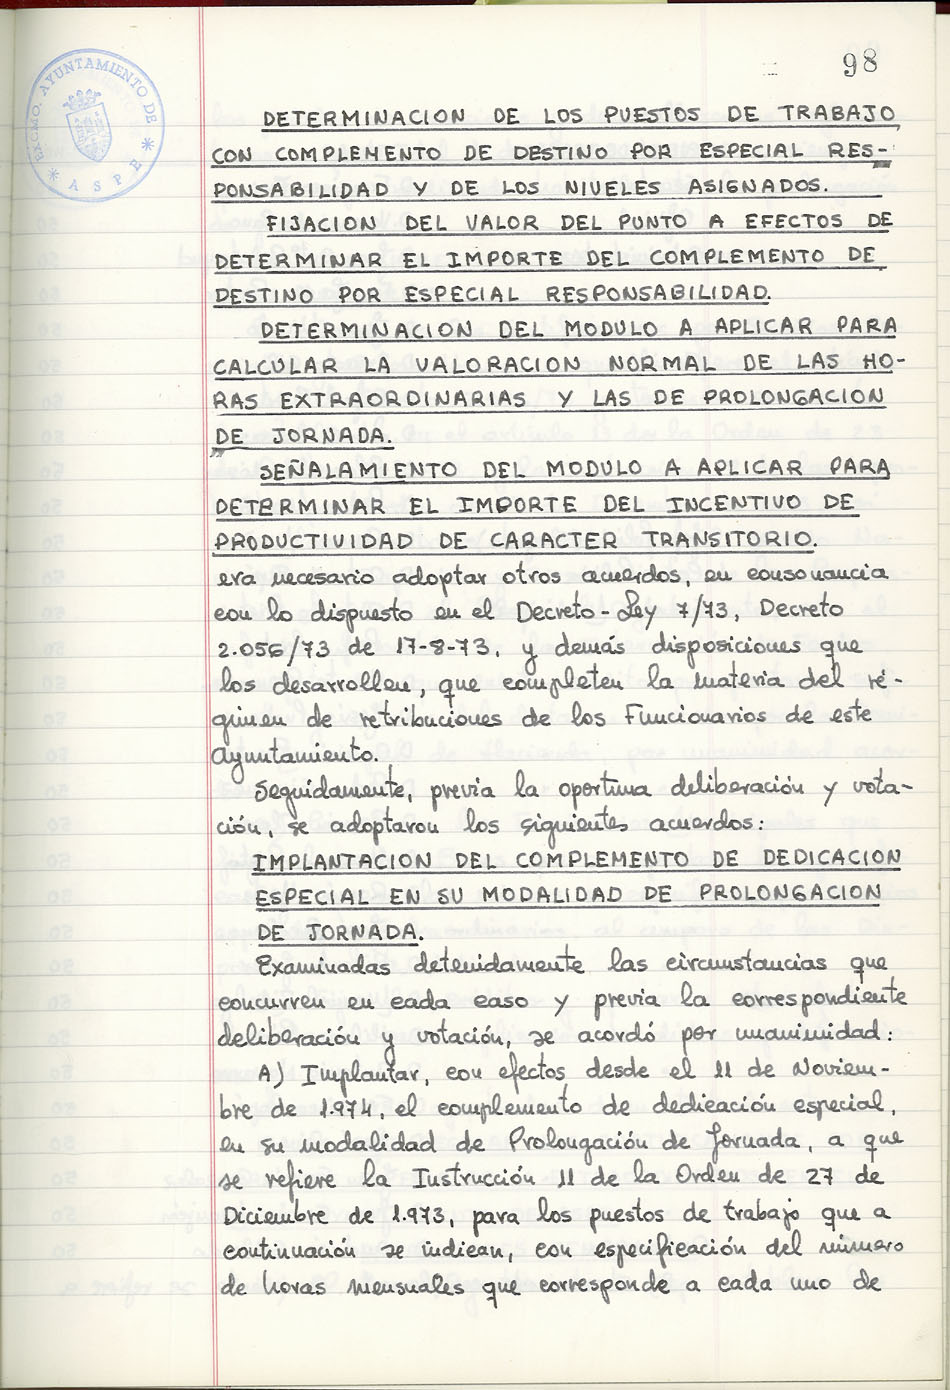 98
EXCMO. AYUNTAMIENTO DE
* ASPE *
DETERMINACION DE LOS PUESTOS DE TRABAJO
CON COMPLEMENTO DE DESTINO POR ESPECIAL RES-
PONSABILIDAD Y DE LOS NIVELES ASIGNADOS.
FIJACION DEL VALOR DEL PUNTO A EFECTOS DE
DETERMINAR EL IMPORTE DEL COMPLEMENTO DE
DESTINO POR ESPECIAL RESPONSABILIDAD.
DETERMINACION DEL MODULO A APLICAR PARA
CALCULAR LA VALORACION NORMAL DE LAS HO-
RAS EXTRAORDINARIAS Y LAS DE PROLONGACION
DE JORNADA.
SEÑALAMIENTO DEL MODULO A APLICAR PARA
DETERMINAR EL IMPORTE DEL INCENTIVO DE
PRODUCTIVIDAD DE CARACTER TRANSITORIO.
era necesario adoptar otros acuerdos, en consonancia
con lo dispuesto en el Decreto-Ley 7/73, Decreto
2.056/73 de 17-8-73, y demás disposiciones que
los desarrollen, que completen la materia del ré-
gimen de retribuciones de los Funcionarios de este
Ayuntamiento.
Seguidamente, previa la oportuna deliberación y vota-
ción, se adoptaron los siguientes acuerdos:
IMPLANTACION DEL COMPLEMENTO DE DEDICACION
ESPECIAL EN SU MODALIDAD DE PROLONGACION
DE JORNADA.
Examinadas detenidamente las circunstancias que
concurren en cada caso y previa la correspondiente
deliberación y votación, se acordó por unanimidad:
A) Implantar, con efectos desde el 11 de Noviem-
bre de 1.974, el complemento de dedicación especial,
en su modalidad de Prolongación de Jornada, a que
se refiere la Instrucción 11 de la Orden de 27 de
Diciembre de 1.973, para los puestos de trabajo que a
continuación se indican, con especificación del número
de horas mensuales que corresponde a cada uno de